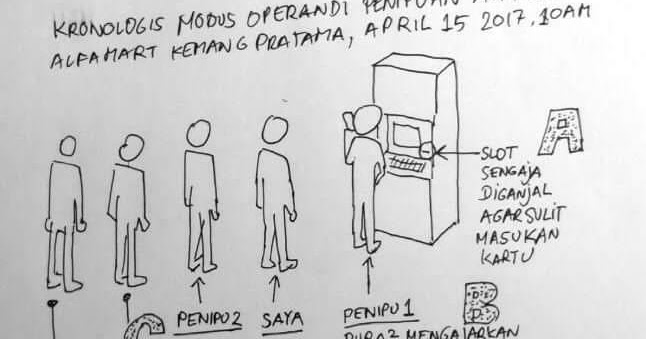 KRONOLOGIS MODUS OPERANDI PENIPUAN
ALFAMART KEMANG PRATAMA, APRIL 15 2017, 10AM
A
SLOT
SENGAJA
DIGANJAL
AGAR SULIT
MASUKAN
KARTU
B
C
PENIPU 2
SAYA
PENIPU 1
PURA2 MENGAJARKAN